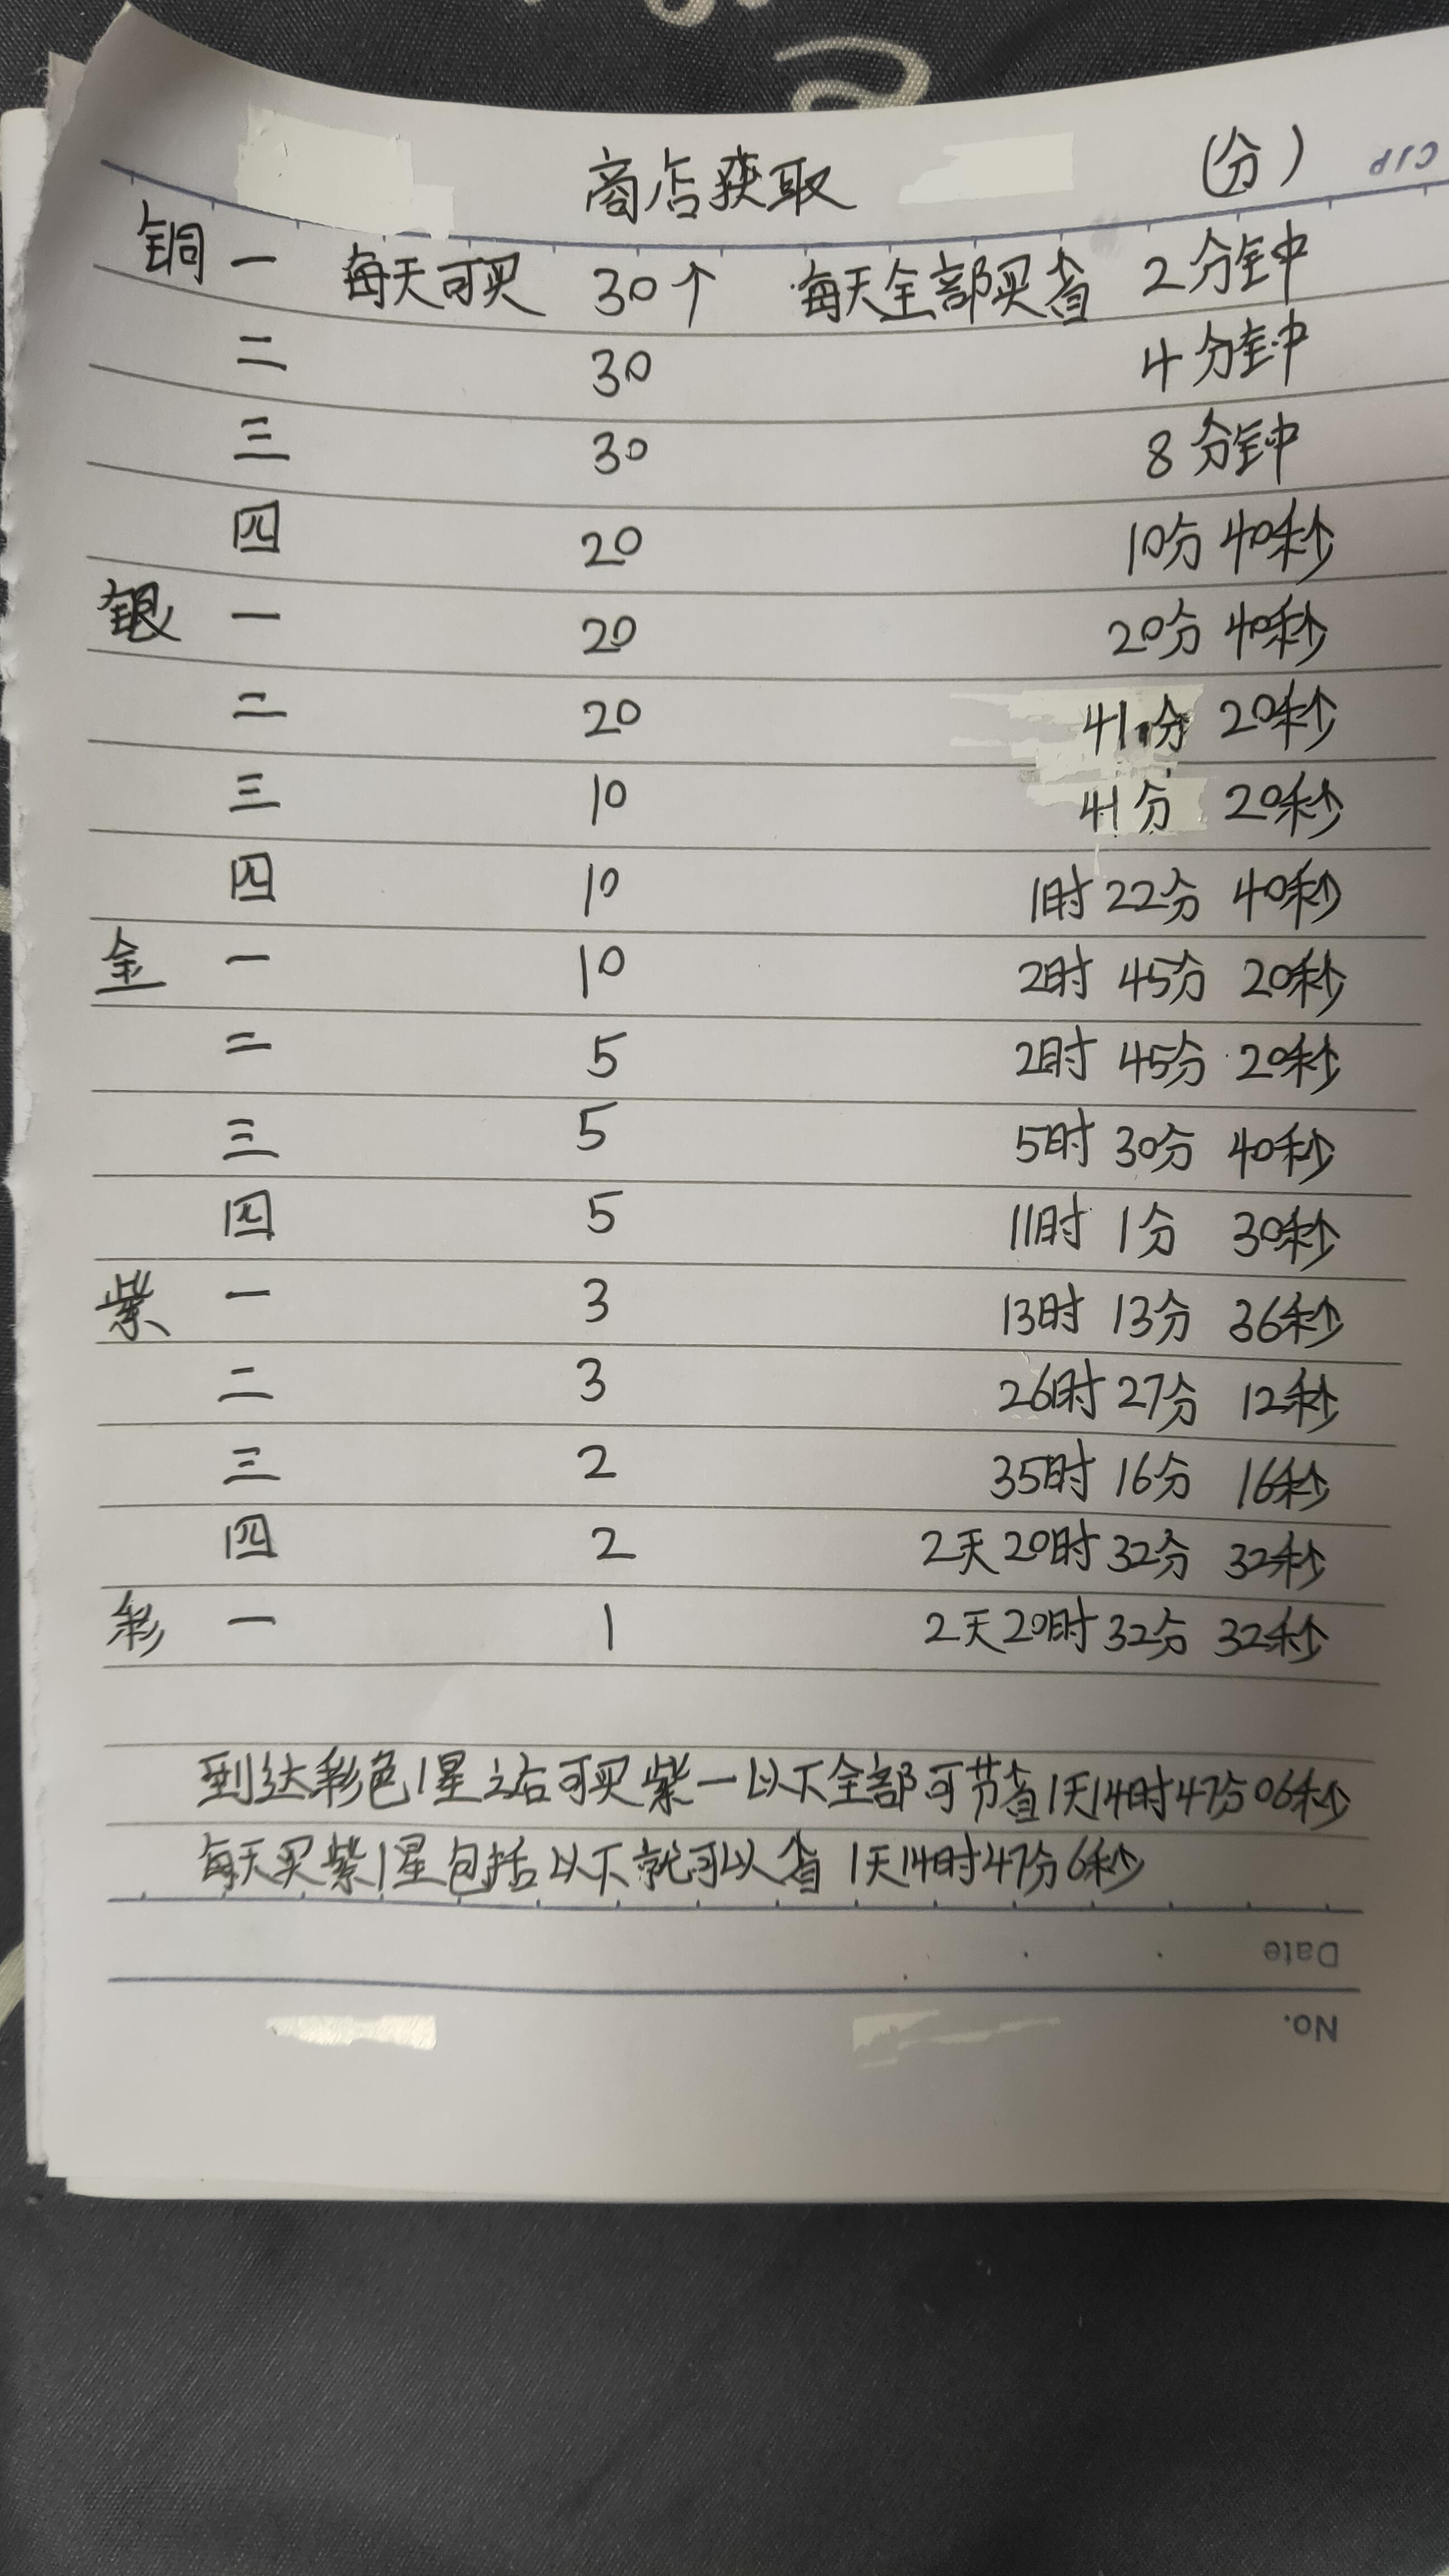 商店获取 (分)
铜 一 每天可买 30个 每天全部买省 2分钟
二 30 4分钟
三 30 8分钟
四 20 10分 40秒
银 一 20 20分 40秒
二 20 41分 20秒
三 10 41分 20秒
四 10 1时 22分 40秒
金 一 10 2时 45分 20秒
二 5 2时 45分 20秒
三 5 5时 30分 40秒
四 5 11时 1分 30秒
紫 一 3 13时 13分 36秒
二 3 26时 27分 12秒
三 2 35时 16分 16秒
四 2 2天 20时 32分 32秒
彩 一 1 2天 20时 32分 32秒
到达彩色1星之后可买紫一以下全部可节省1天14时47分06秒
每天买紫1星包括以下就可以省 1天14时47分6秒
Date
No.